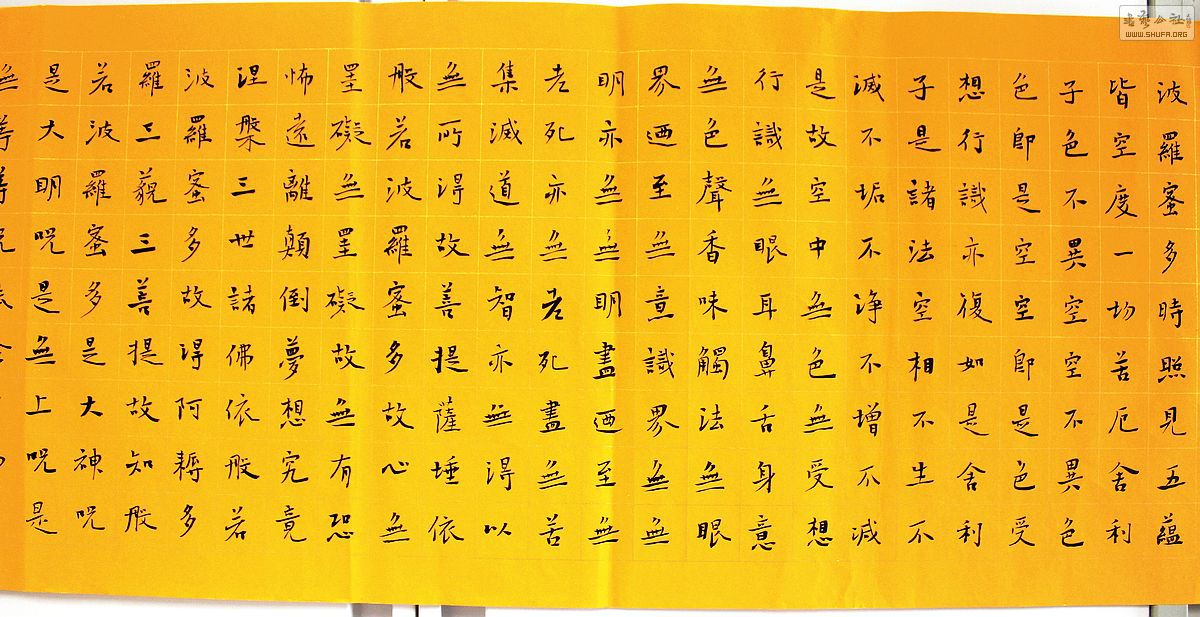 波羅蜜多時照見五蘊
皆空度一切苦厄舍利
子色不異空空不異色
色即是空空即是色受
想行識亦復如是舍利
子是諸法空相不生不
滅不垢不淨不增不減
是故空中無色無受想
行識無眼耳鼻舌身意
無色聲香味觸法無眼
界迺至無意識界無無
明亦無無明盡迺至無
老死亦無老死盡無苦
集滅道無智亦無得以
無所得故菩提薩埵依
般若波羅蜜多故心無
罣礙無罣礙故無有恐
怖遠離顛倒夢想究竟
涅槃三世諸佛依般若
波羅蜜多故得阿耨多
羅三藐三菩提故知般
若波羅蜜多是大神咒
是大明咒是無上咒是
WWW.SHUFA.ORG